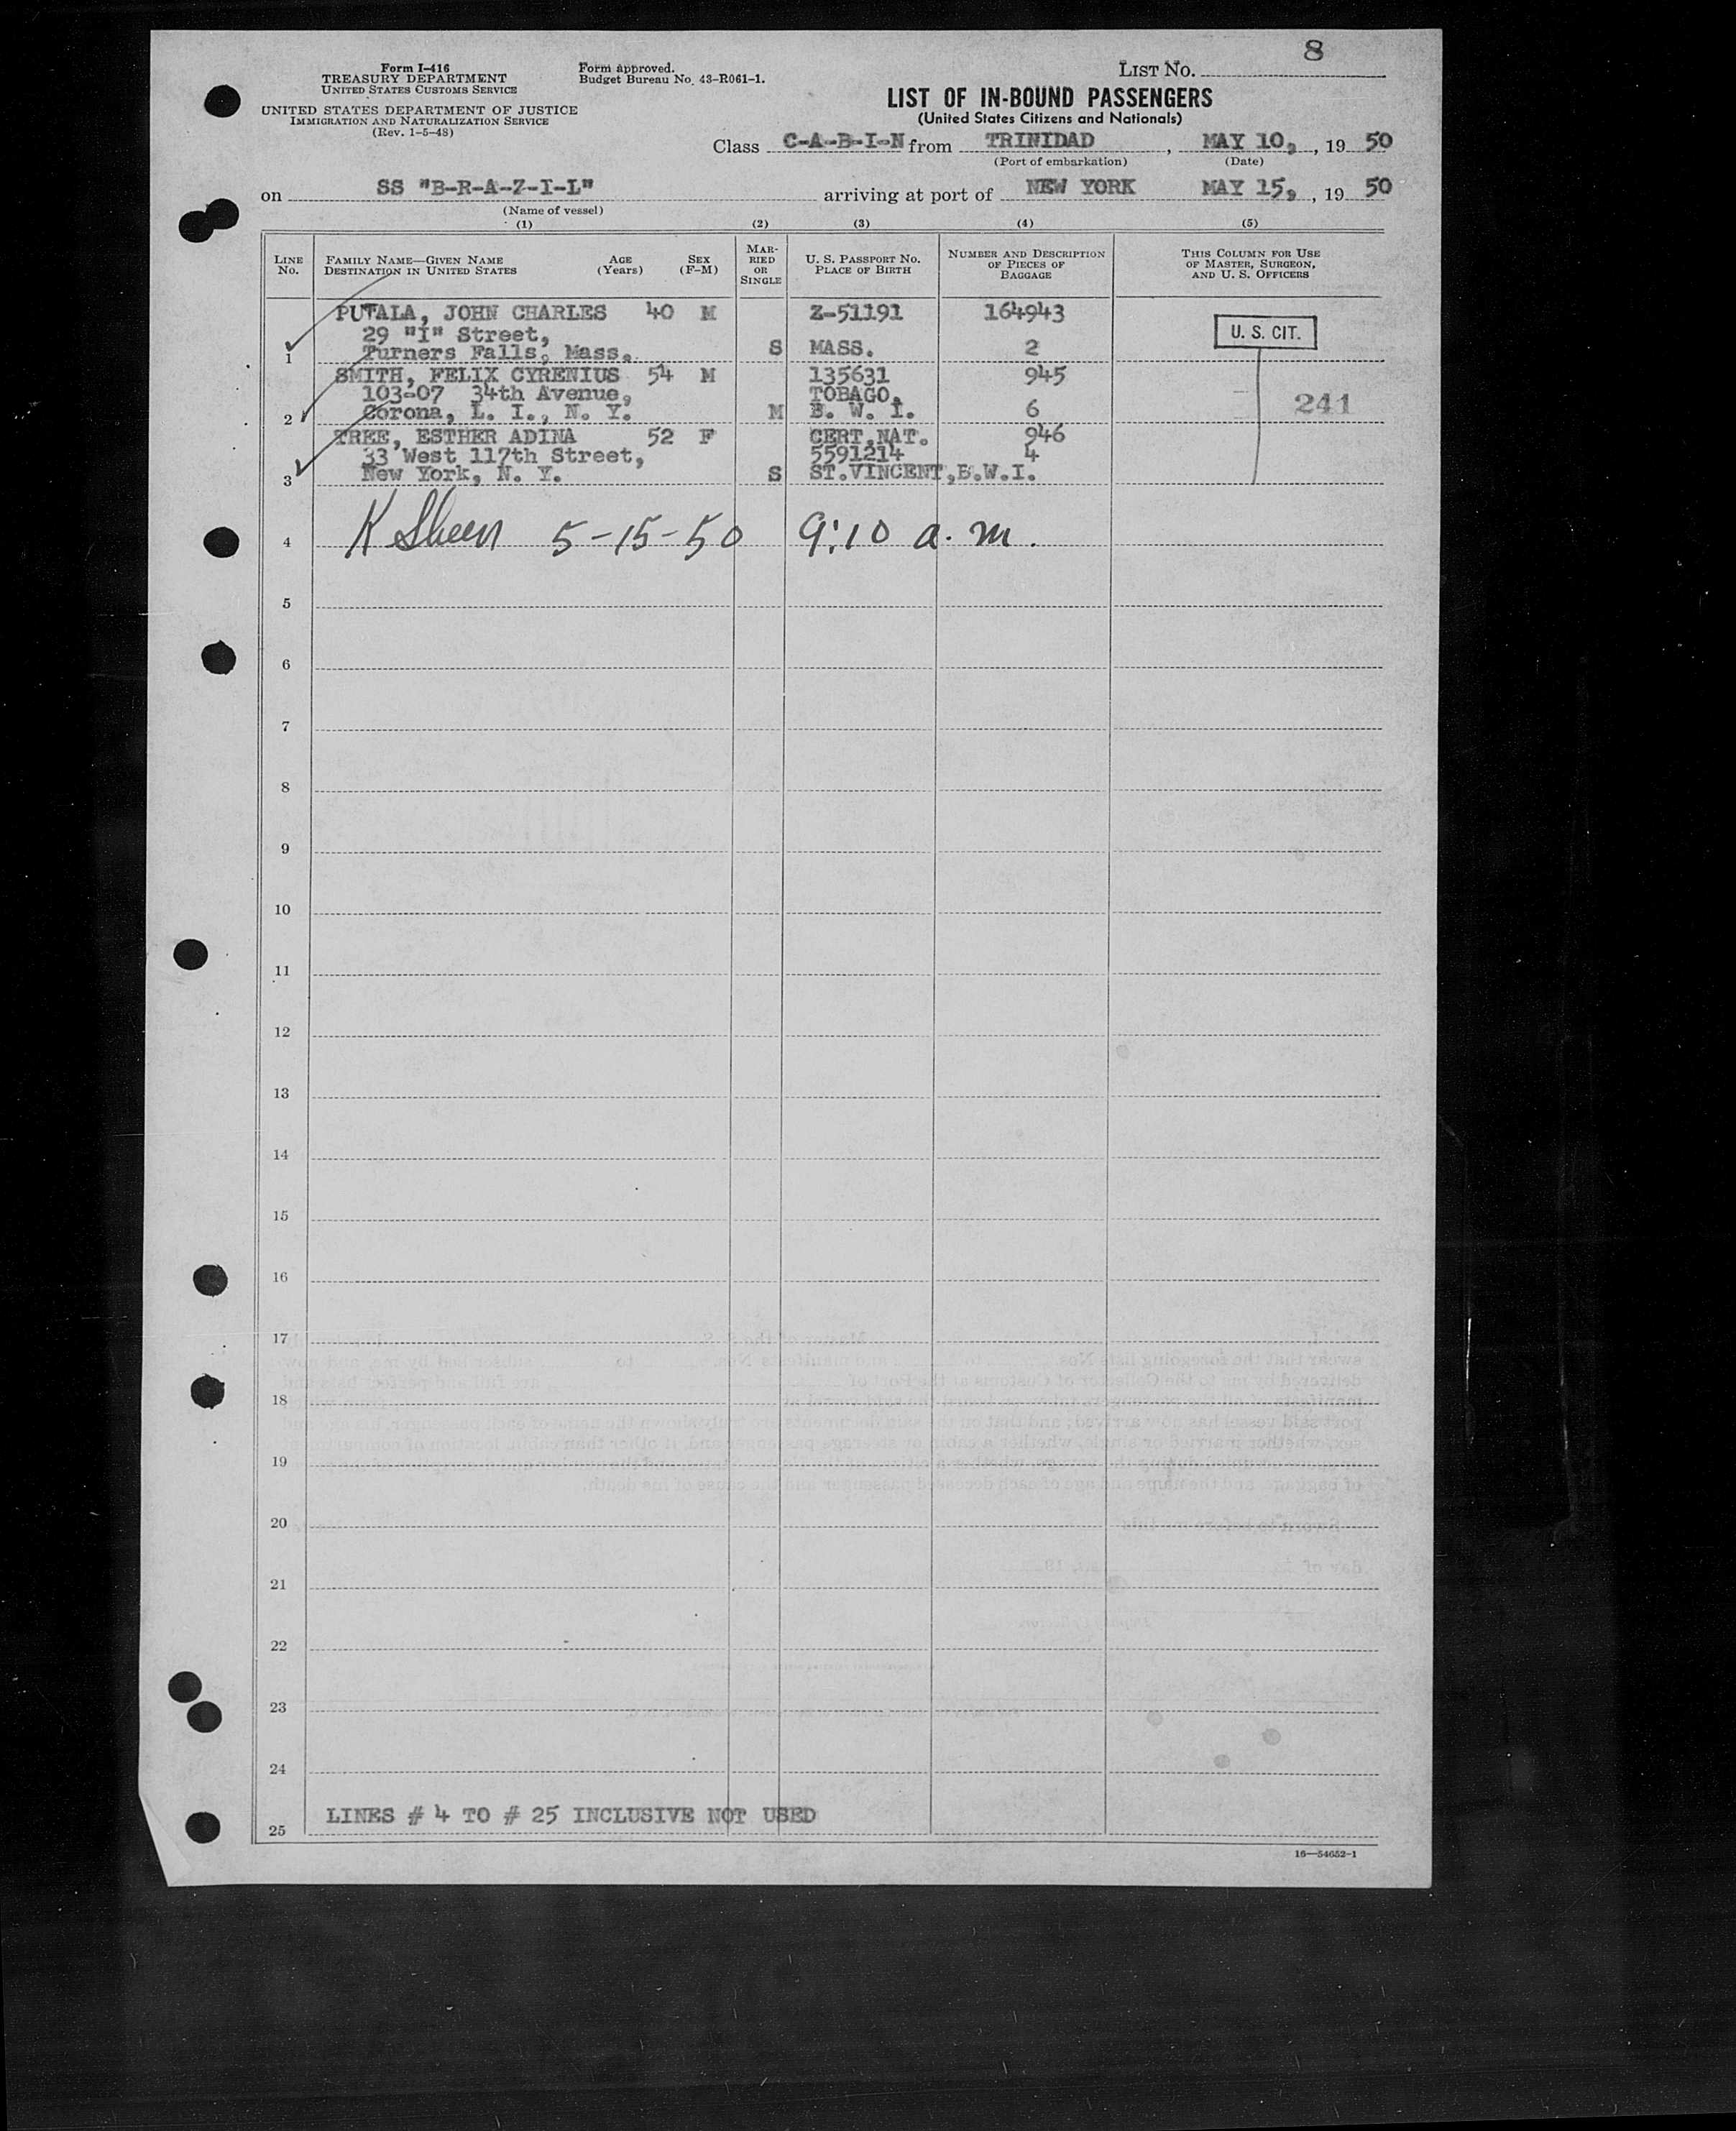 8
Form I-416
TREASURY DEPARTMENT
UNITED STATES CUSTOMS SERVICE
UNITED STATES DEPARTMENT OF JUSTICE
IMMIGRATION AND NATURALIZATION SERVICE
(Rev. 1-5-48)
Form approved.
Budget Bureau No. 43-R061-1.
LIST NO.
LIST OF IN-BOUND PASSENGERS
(United States Citizens and Nationals)
Class C-A-B-I-N from TRINIDAD, MAY 10, , 19 50
(Port of embarkation) (Date)
on SS "B-R-A-Z-I-L" arriving at port of NEW YORK MAY 15, , 19 50
(Name of vessel)
(1) (2) (3) (4) (5)
LINE NO.
FAMILY NAME—GIVEN NAME
DESTINATION IN UNITED STATES
AGE (Years)
SEX (F-M)
MAR-
RIED
OR
SINGLE
U. S. PASSPORT NO.
PLACE OF BIRTH
NUMBER AND DESCRIPTION
OF PIECES OF
BAGGAGE
THIS COLUMN FOR USE
OF MASTER, SURGEON,
AND U. S. OFFICERS
PUTALA, JOHN CHARLES 40 M Z-51191 164943
29 "I" Street, U. S. CIT.
1 Turners Falls, Mass. S MASS. 2
SMITH, FELIX CYRENIUS 54 M 135631 945
103-07 34th Avenue, TOBAGO,
2 Corona, L. I., N. Y. M B. W. I. 6 241
TREE, ESTHER ADINA 52 F CERT.NAT. 946
33 West 117th Street, 5591214 4
3 New York, N. Y. S ST.VINCENT,B.W.I.
4 K Sheen 5-15-50 9:10 a.m.
5
6
7
8
9
10
11
12
13
14
15
16
17
18
19
20
21
22
23
24
25 LINES # 4 TO # 25 INCLUSIVE NOT USED
16—54652-1